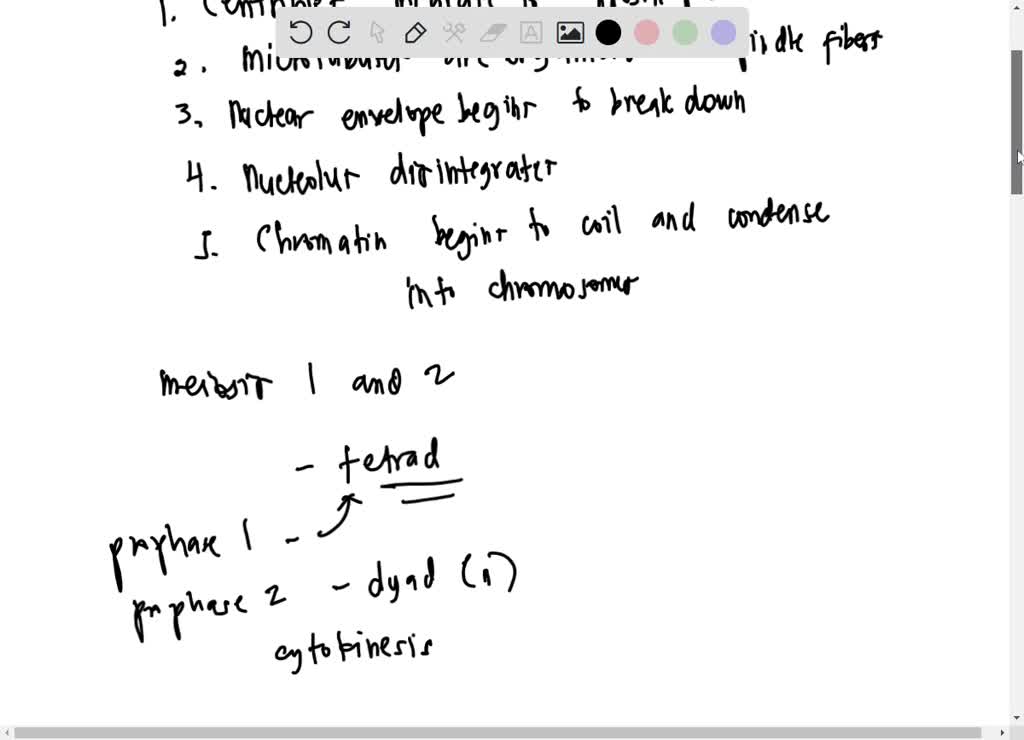 1.
2. are fibers
3. Nuclear envelope begins to break down
4. Nucleolus disintegrates
5. Chromatin begins to coil and condense
into chromosomes
meiosis 1 and 2
- tetrad
prophase 1 -
prophase 2 - dyad (n)
cytokinesis